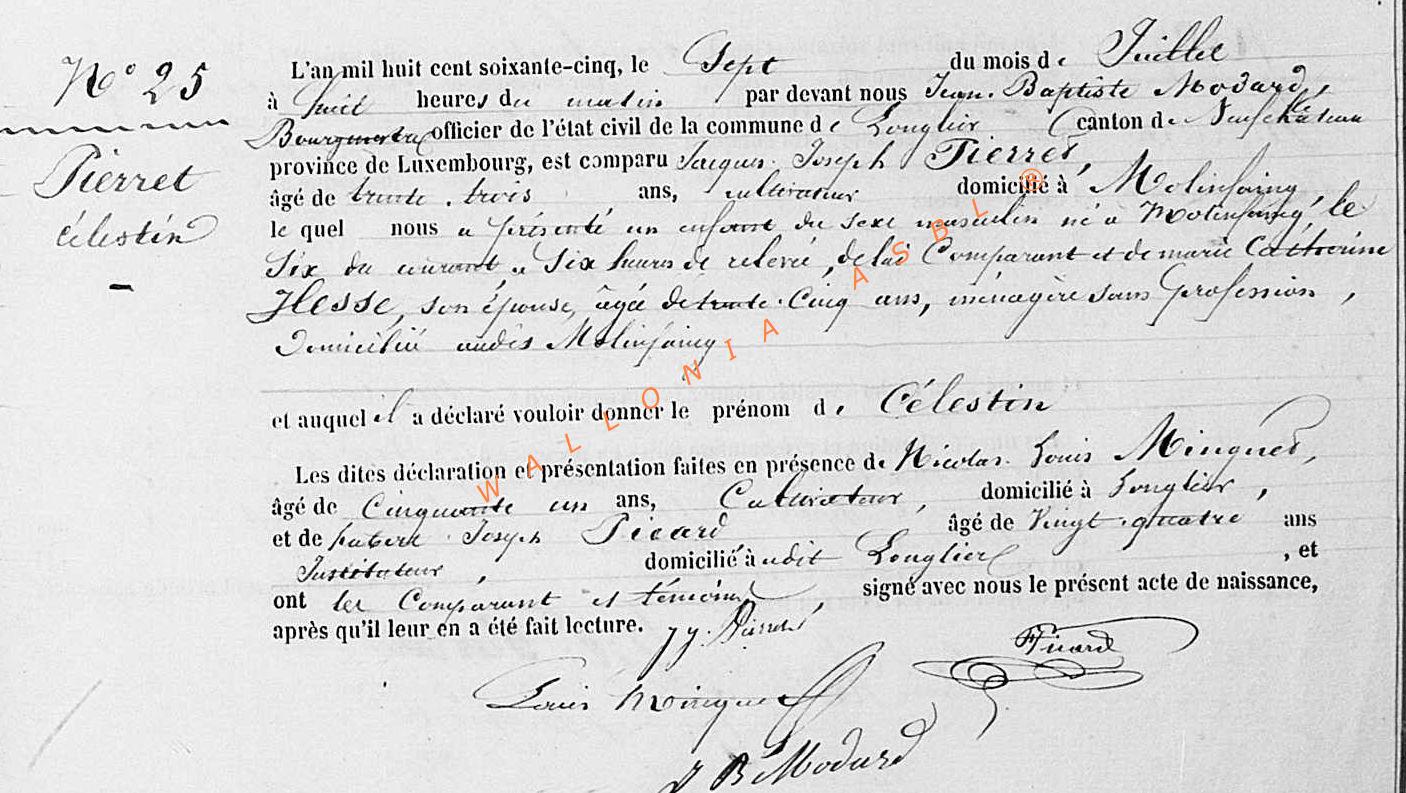 N° 25
Pierret
Célestin
L'an mil huit cent soixante-cinq, le Sept du mois de Juillet
à huit heures du matin par devant nous Jean-Baptiste Modard,
Bourgmestre officier de l'état civil de la commune de Longlier canton de Neufchateau
province de Luxembourg, est comparu Jacques Joseph Pierret,
âgé de trente-trois ans, cultivateur domicilié à Molinfaing
le quel nous a présenté un enfant du sexe masculin né à Molinfaing le
Six du courant à Six heures de relevée, de lui Comparant et de marie Catherine
Hesse, son épouse, âgée de trente-Cinq ans, ménagère sans profession,
Domicilié audit Molinfaing
et auquel il a déclaré vouloir donner le prénom de Célestin
Les dites déclaration et présentation faites en présence de Nicolas Louis Minguet,
âgé de Cinquante un ans, Cultivateur, domicilié à Longlier,
et de hubert Joseph Picard âgé de Vingt-quatre ans
Instituteur, domicilié à udit Longlier, et
ont les Comparant et témoins, signé avec nous le présent acte de naissance,
après qu'il leur en a été fait lecture. JJ. Pierret
Picard
Louis Minguet
J B Modard
WALLONIA ASBL ®